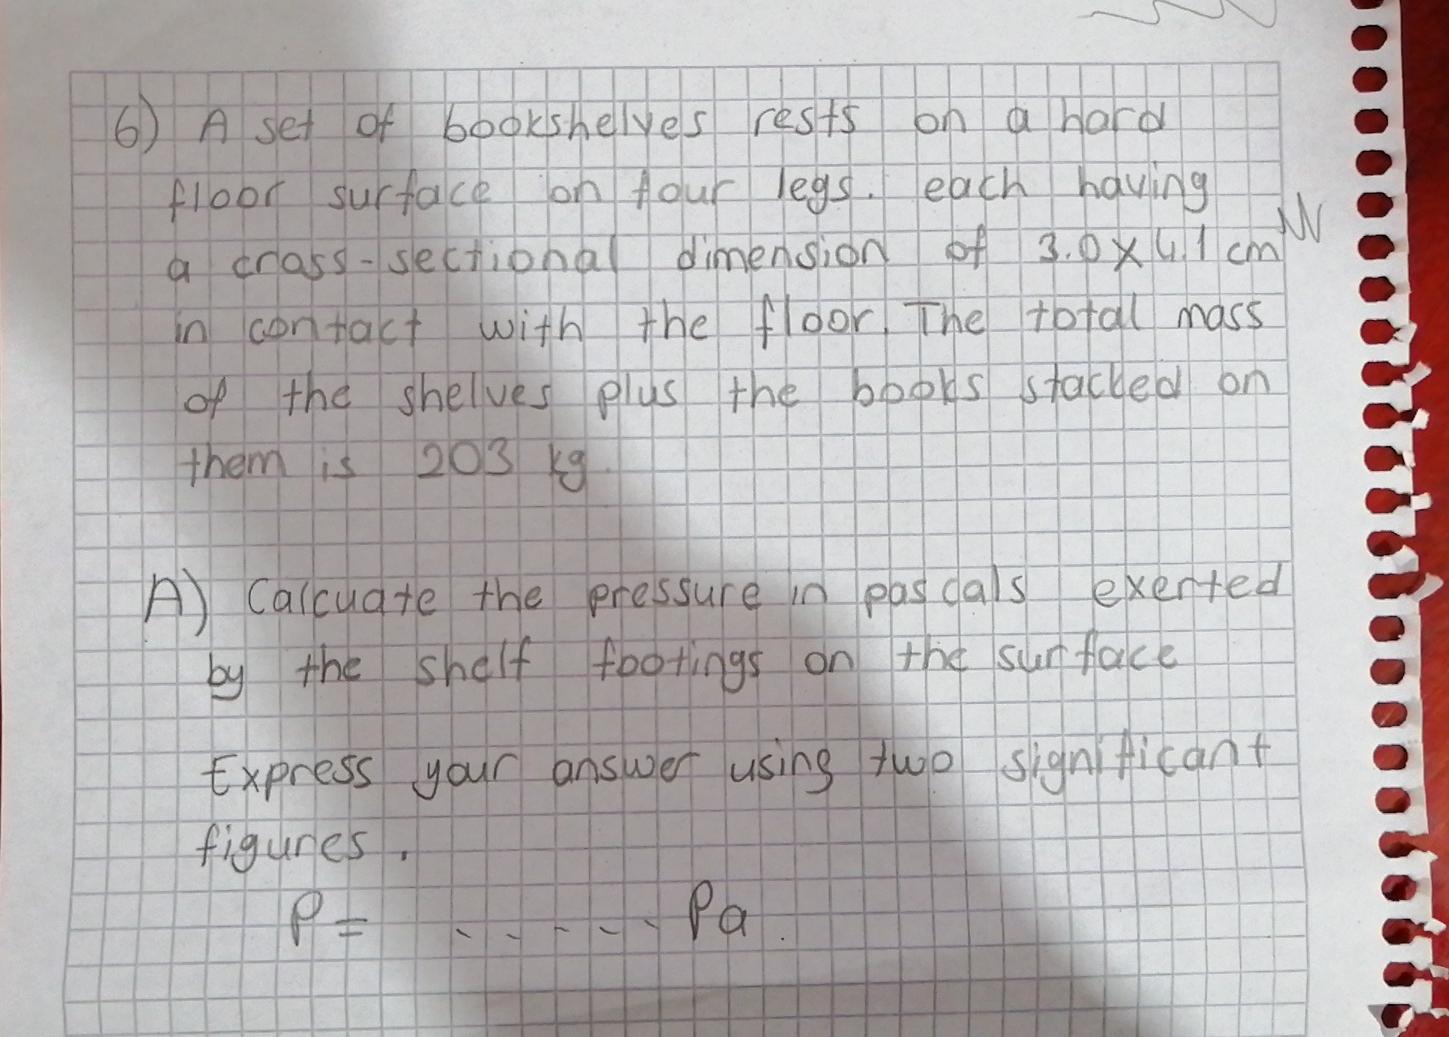 6) A set of bookshelves rests on a hard
floor surface on four legs. each having
a cross-sectional dimension of 3.0 x 4.1 cm
in contact with the floor. The total mass
of the shelves plus the books stacked on
them is 203 kg.
A) Calcuate the pressure in pascals exerted
by the shelf footings on the surface
Express your answer using two significant
figures.
P = ..... Pa.